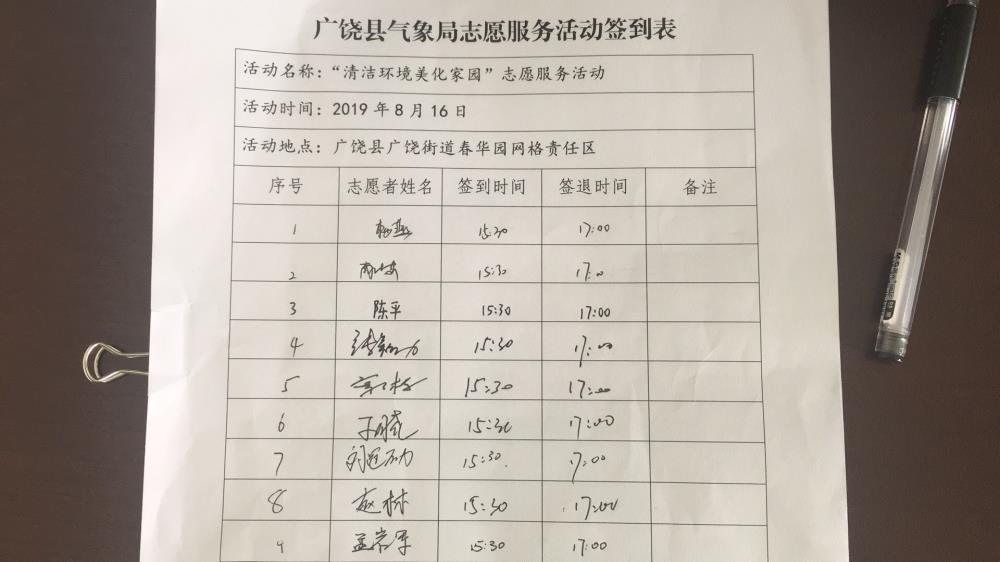 广饶县气象局志愿服务活动签到表
活动名称：“清洁环境美化家园”志愿服务活动
活动时间：2019 年 8 月 16 日
活动地点：广饶县广饶街道春华园网格责任区
序号 志愿者姓名 签到时间 签退时间 备注
1 15:30 17:00
2 15:30 17:00
3 陈平 15:30 17:00
4 15:30 17:00
5 15:30 17:00
6 15:30 17:00
7 15:30 17:00
8 赵林 15:30 17:00
9 孟岩军 15:30 17:00